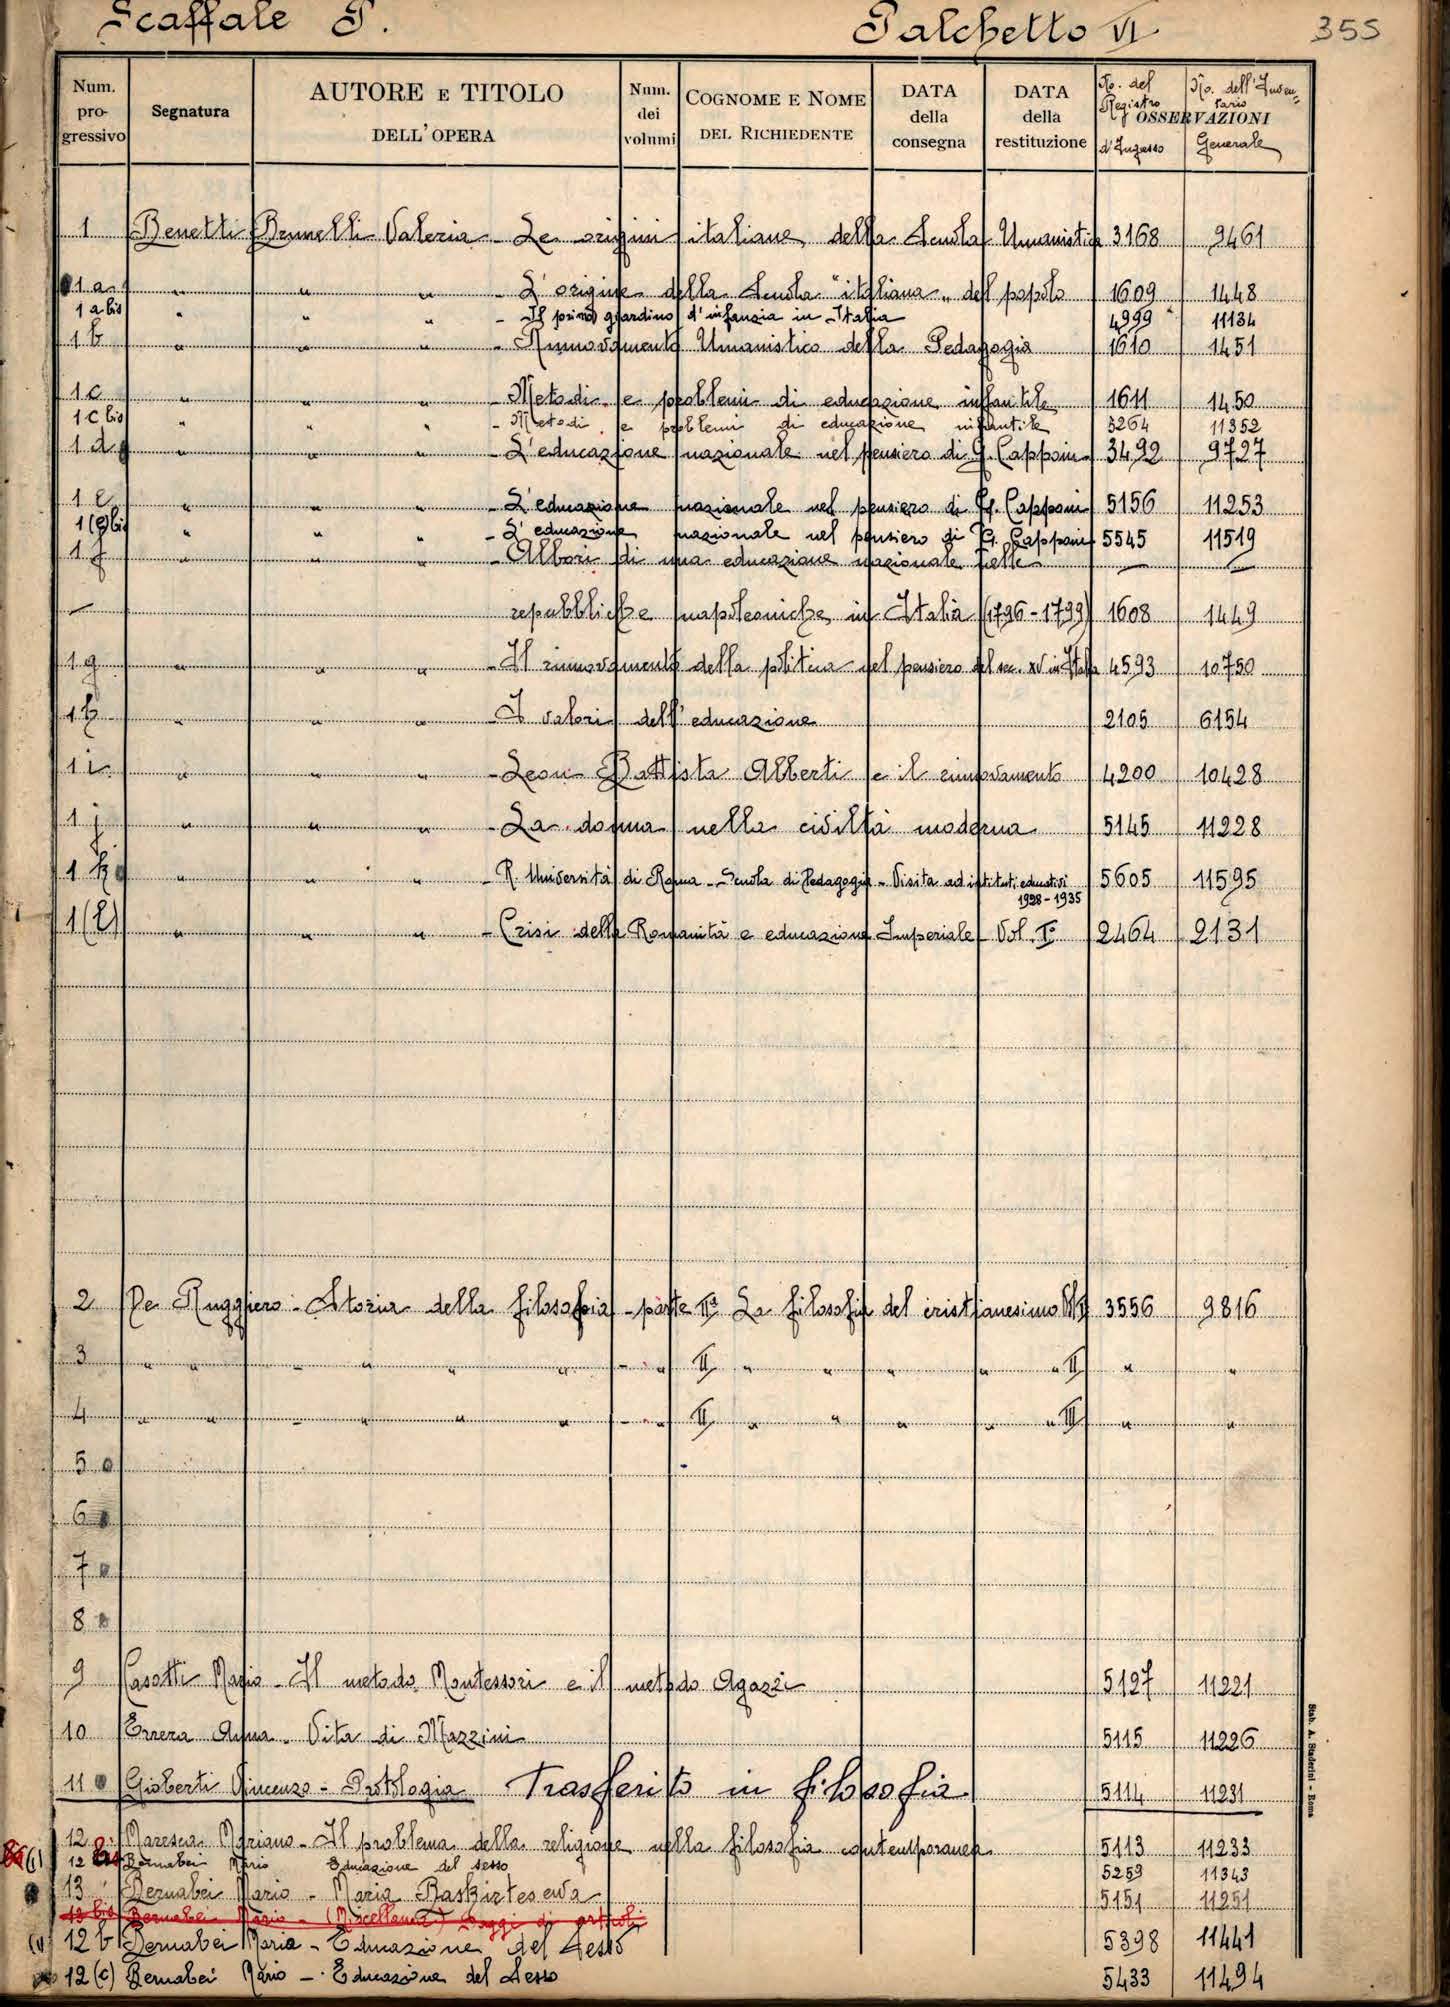 Scaffale P. Palchetto VI 355
Num. progressivo Segnatura AUTORE E TITOLO DELL'OPERA Num. dei volumi COGNOME E NOME DEL RICHIEDENTE DATA della consegna DATA della restituzione OSSERVAZIONI No. del Registro d'Ingresso No. dell'Inventario Generale
1 Benetti Brunelli Valeria - Le origini italiane della Scuola Umanistica 3168 9461
1 a " " " - L'origine della Scuola "italiana" del popolo 1609 1448
1 a bis " " " - Il primo giardino d'infanzia in Italia 4999 11134
1 b " " " - Rinnovamento Umanistico della Pedagogia 1610 1451
1 c " " " - Metodi e problemi di educazione infantile 1611 1450
1 c bis " " " - Metodi e problemi di educazione infantile 5264 11352
1 d " " " - L'educazione nazionale nel pensiero di G. Capponi 3492 9727
1 e " " " - L'educazione nazionale nel pensiero di G. Capponi 5156 11253
1 (e) bis " " " - L'educazione nazionale nel pensiero di G. Capponi 5545 11519
1 f " " " - Albori di una educazione nazionale nelle — —
— repubbliche napoleoniche in Italia (1796-1799) 1608 1449
1 g " " " - Il rinnovamento della politica nel pensiero del sec. XV in Italia 4593 10750
1 h " " " - I valori dell'educazione 2105 6154
1 i " " " - Leon Battista Alberti e il rinnovamento 4200 10428
1 j " " " - La donna nella civiltà moderna 5145 11228
1 k " " " - R. Università di Roma - Scuola di Pedagogia - Visita ad istituti educativi 5605 11595
1928-1935
1 (l) " " " - Crisi della Romanità e educazione Imperiale - Vol. I° 2464 2131
2 De Ruggiero - Storia della filosofia - parte IIª La filosofia del cristianesimo Vol. I 3556 9816
3 " " - " " " - " II " " " " " II " "
4 " " - " " " - " II " " " " " III " "
5
6
7
8
9 Casotti Mario - Il metodo Montessori e il metodo Agazzi 5127 11221
10 Errera Anna - Vita di Mazzini 5115 11226
11 Gioberti Vincenzo - Protologia Trasferito in filosofia 5114 11231
12 Maresca Mariano - Il problema della religione nella filosofia contemporanea 5113 11233
12 Bernabei Mario Educazione del sesso 5259 11343
13 Bernabei Mario - Maria Baskirtseva 5151 11251
13 bis Bernabei Mario - (Miscellanea) Saggi di articoli
12 b Bernabei Mario - Educazione del Sesso 5398 11441
12 (c) Bernabei Mario - Educazione del Sesso 5433 11494
Stab. A. Staderini - Roma